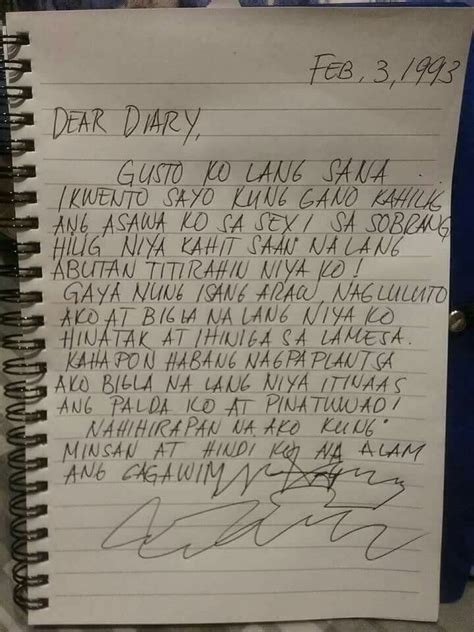 FEB. 3, 1993
DEAR DIARY,
GUSTO KO LANG SANA
IKWENTO SAYO KUNG GANO KAHILIG
ANG ASAWA KO SA SEX! SA SOBRANG
HILIG NIYA KAHIT SAAN NA LANG
ABUTAN TITIRAHIN NIYA KO!
GAYA NUNG ISANG ARAW, NAGLULUTO
AKO AT BIGLA NA LANG NIYA KO
HINATAK AT IHINIGA SA LAMESA.
KAHAPON HABANG NAGPAPLANTSA
AKO BIGLA NA LANG NIYA ITINAAS
ANG PALDA KO AT PINATUWAD!
NAHIHIRAPAN NA AKO KUNG
MINSAN AT HINDI KO NA ALAM
ANG GAGAWIN